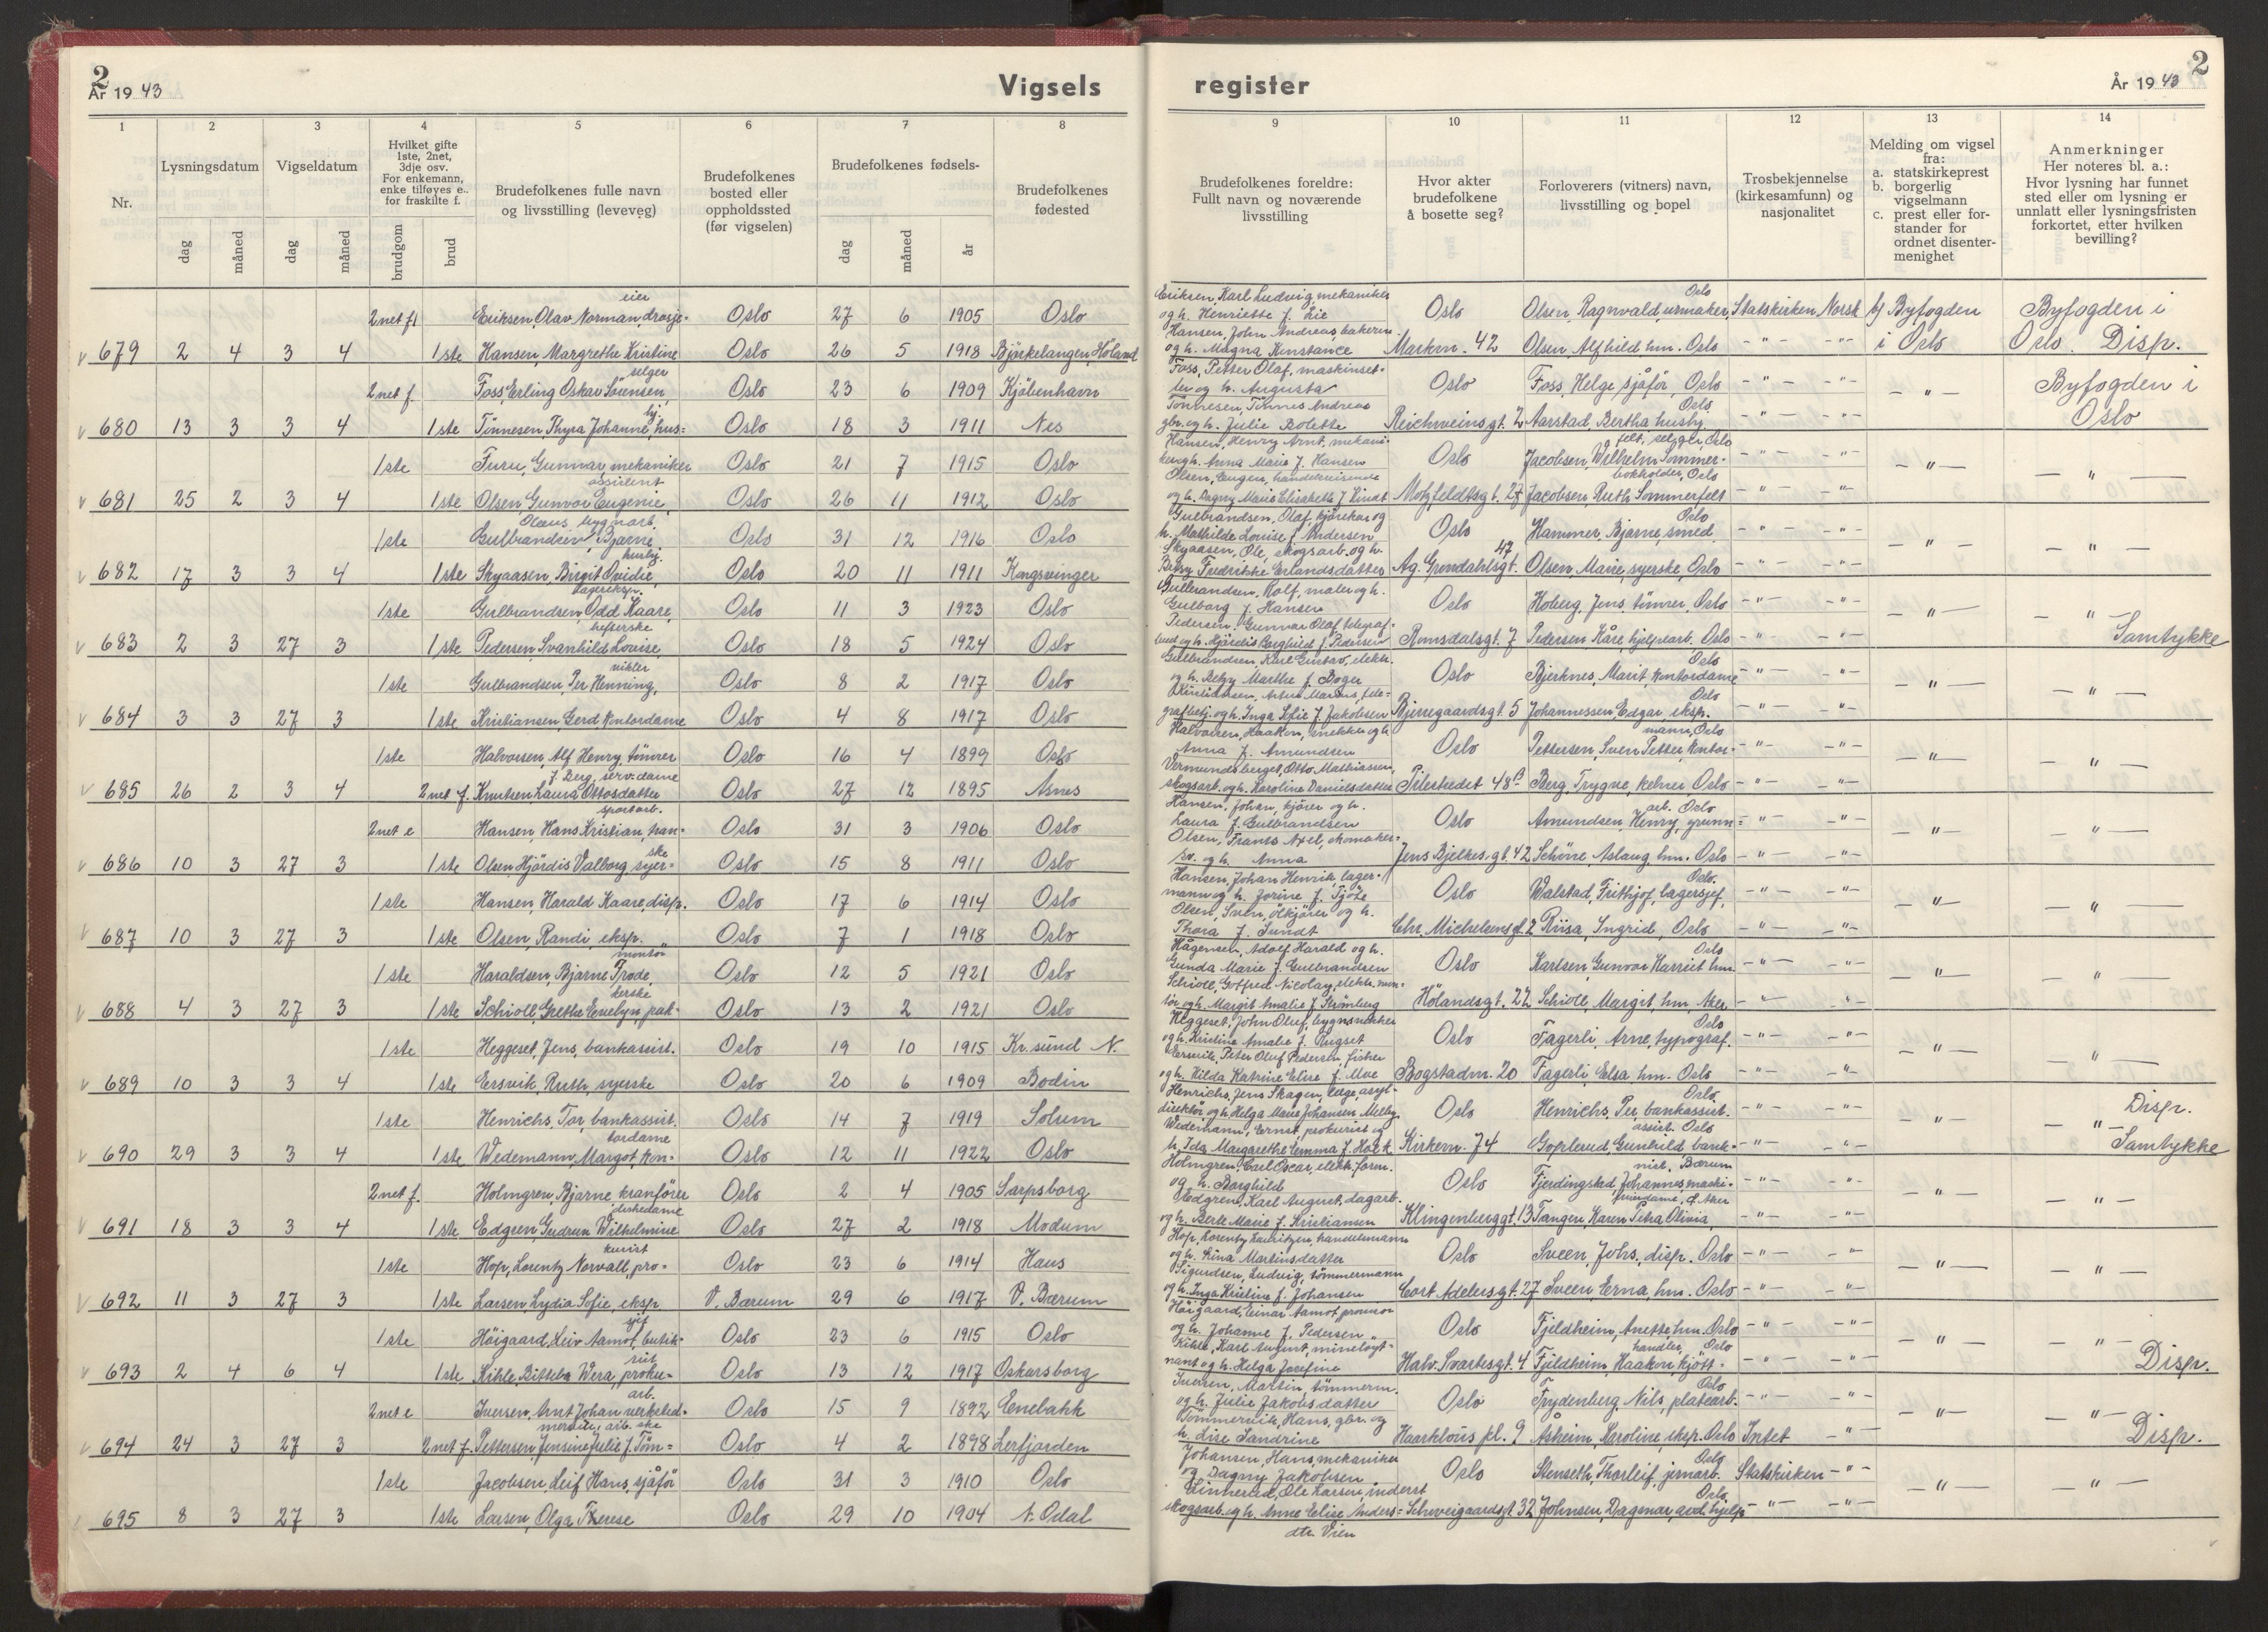 2
År 19 43
Vigsels
register
År 19 43
2
1 2 3 4 5 6 7 8 9 10 11 12 13 14
Nr.
Lysningsdatum
dag måned
Vigseldatum
dag måned
Hvilket gifte
1ste, 2net,
3dje osv.
For enkemann,
enke tilføyes e..
for fraskilte f.
brudgom brud
Brudefolkenes fulle navn
og livsstilling (levevei)
Brudefolkenes
bosted eller
oppholdssted
(før vigselen)
Brudefolkenes fødsels-
dag måned år
Brudefolkenes
fødested
Brudefolkenes foreldre:
Fullt navn og noværende
livsstilling
Hvor akter
brudefolkene
å bosette seg?
Forloverers (vitners) navn,
livsstilling og bopel
Trosbekjennelse
(kirkesamfunn) og
nasjonalitet
Melding om vigsel
fra:
a. statskirkeprest
b. borgerlig
vigselmann
c. prest eller for-
stander for
ordnet disenter-
menighet
Anmerkninger
Her noteres bl. a.:
Hvor lysning har funnet
sted eller om lysning er
unnlatt eller lysningsfristen
forkortet, etter hvilken
bevilling?
2net f Eriksen, Olav Norman, drosje- eier Oslo 27 6 1905 Oslo
Eriksen, Karl Ludvig, mekaniker
og h. Henriette f. Lie
Oslo Olsen, Ragnvald, urmaker, Oslo Statskirken Norsk b) Byfogden Byfogden i
679 2 4 3 4 1ste Hansen, Margrethe Kristine Oslo 26 5 1918 Bjørkelangen, Høland
Hansen, John Andreas, bakerm.
og h. Magna Konstance
Markvn. 42 Olsen Alfhild hm. Oslo -"- -"- i Oslo Oslo. Disp.
2net f. Foss, Erling Oskar Sørensen, selger Oslo 23 6 1909 Kjøbenhavn
Foss, Petter Olaf, maskinset-
ter og h. Augusta
Oslo Foss, Helge sjåfør, Oslo -"- -"- -"- Byfogden i
680 13 3 3 4 1ste Tønnesen, Thyra Johanne, hus= hj. Oslo 18 3 1911 Nes
Tønnesen, Tønnes Andreas
gbr. og h. Julie Bolette
Reichweinsgt. 2 Aarstad, Bertha hushj. Oslo -"- -"- Oslo
1ste Furu, Gunnar, mekaniker Oslo 21 7 1915 Oslo
Hansen, Henry Arnt, mekani-
ker og h. Anna Marie f. Hansen
Oslo Jacobsen, Wilhelm Sommer- felt, selger, Oslo -"- -"- -"- -"-
681 25 2 3 4 1ste Olsen, Gunvor Eugenie, assistent Oslo 26 11 1912 Oslo
Olsen, Eugen, handelsreisende
og h. Dagny Marie Elisabeth f. Lindt
Motzfeldtsgt. 27 Jacobsen, Ruth Sommerfelt bokholder, Oslo -"- -"-
1ste Gulbrandsen, Bjarne Olaus, bygnarb. Oslo 31 12 1916 Oslo
Gulbrandsen, Olaf, kjørekar og
h. Mathilde Louise f. Andersen
Oslo Hammer, Bjarne, smed, Oslo -"- -"- -"- -"-
682 17 3 3 4 1ste Skyaasen, Birgit Ovidie, hushj. Oslo 20 11 1911 Kongsvinger
Skyaasen, Ole, skogsarb. og h.
Berny Fredrikke Erlandsdatter
Ag. Grøndahlsgt. 47 Olsen, Marie, syerske, Oslo -"- -"-
1ste Gulbrandsen, Odd Kaare, lagereksp. Oslo 11 3 1923 Oslo
Gulbrandsen, Rolf, maler og h.
Gulborg f. Hansen
Oslo Hoberg, Jens tømrer, Oslo -"- -"- -"- -"-
683 2 3 27 3 1ste Pedersen, Svanhild Lovise, hefterske Oslo 18 5 1924 Oslo
Pedersen, Gunnar Olaf telegraf-
bud og h. Hjørdis Borghild f. Pedersen
Romsdalsgt. 7 Pedersen Kåre, hjelpearb. Oslo -"- -"- Samtykke
1ste Gulbrandsen, Per Henning, vikler Oslo 8 2 1917 Oslo
Gulbrandsen, Karl Gustav, elektr.
og h. Betzy Marthe f. Boger
Oslo Bjerknes, Marit, kontordame Oslo -"- -"- -"- -"-
684 3 3 27 3 1ste Kristiansen, Gerd, kontordame Oslo 4 8 1917 Oslo
Kristiansen, Artur Marius, tele=
grafbetj. og h. Inga Sofie f. Jakobsen
Bjerregaardsgt. 5 Johannessen, Edgar, eksp. Oslo -"- -"-
1ste Halvorsen, Alf Henry, tømrer Oslo 16 4 1899 Oslo
Halvorsen, Haakon, snekker og h.
Anna f. Amundsen
Oslo Pettersen, Sven Petter, kontor- mann, Oslo -"- -"- -"- -"-
685 26 2 3 4 2net f. Knutsen Laura Ottosdatter f. Berg, serv.dame Oslo 27 12 1895 Åsnes
Vermundsberget, Otto Mathiassen,
skogsarb. og h. Karoline Danielsdatter
Pilestredet 48B Berg, Trygve, kelner Oslo -"- -"-
2net e Hansen, Hans Kristian, tran= sportarb. Oslo 31 3 1906 Oslo
Hansen, Johan, kjører og h.
Laura f. Gulbrandsen
Oslo Amundsen, Henry, grunn= arb. Oslo -"- -"- -"- -"-
686 10 3 27 3 1ste Olsen Hjørdis Valborg, syer= ske Oslo 15 8 1911 Oslo
Olsen, Frants Axel, skomaker-
sv. og h. Anna
Jens Bjelkes gt. 42 Schøne, Aslaug, hm. Oslo -"- -"-
1ste Hansen, Harald Kaare, disp. Oslo 17 6 1914 Oslo
Hansen, Johan Henrik, lager-
mann og h. Jorine f. Tjøte
Oslo Walstad, Frithjof, lagersjef, Oslo. -"- -"- -"- -"-
687 10 3 27 3 1ste Olsen, Randi, eksp. Oslo 7 1 1918 Oslo
Olsen, Sven, ølkjører og h.
Thora f. Sundt
Chr. Michelsensgt. 2 Riisa, Ingrid, Oslo -"- -"-
1ste Haraldsen, Bjarne Frode, montør Oslo 12 5 1921 Oslo
Hågensen, Adolf Harald og h.
Gunda Marie f. Gulbrandsen
Oslo Karlsen, Gunvor Harriet hm. Oslo -"- -"- -"- -"-
688 4 3 27 3 1ste Schiøll, Grethe Evelyn, pak- kerske Oslo 13 2 1921 Oslo
Schiøll, Gotfred Nicolay, elektr. mon=
tør og h. Margit Amalie f. Strømberg
Hølandsgt. 22 Schiøll, Margit, hm, Aker -"- -"-
1ste Heggeset, Jens, bankassist. Oslo 19 10 1915 Kr.sund N.
Heggeset, John Oluf, bygnsnekker
og h. Kristine Amalie f. Rugset
Oslo Fagerli, Arne, typograf. Oslo -"- -"- -"- -"-
689 10 3 3 4 1ste Eersvik, Ruth, syerske Oslo 20 6 1909 Bodin
Eersvik, Peter Oluf Pedersen, fisker
og h. Hilda Katrine Elise f. Moe
Bogstadvn. 20 Fagerli, Elsa hm. Oslo -"- -"-
1ste Henrichs, Tor, bankassist. Oslo 14 7 1919 Solum
Henrichs, Jens Skagen, lege, asyl-
direktør og h. Helga Marie Johansen Melby
Oslo Henrichs, Per, bankassist. Oslo. -"- -"- -"- Disp. -"-
690 29 3 3 4 1ste Wedemann, Margot, kon- tordame Oslo 12 11 1922 Oslo
Wedemann, Ernst, prokurist og
h. Ida Margarethe Emma f. Holk
Kirkevn. 74 Goplerud, Gunhild, bank= assist. Oslo -"- -"- Samtykke
2net f. Holmgren, Bjarne kranfører Oslo 2 4 1905 Sarpsborg
Holmgren, Carl Oscar, elektr. form.
og h. Borghild
Oslo Fjerdingstad, Johannes, maski= nist, Bærum -"- -"- -"- -"-
691 18 3 3 4 1ste Edgren, Gudrun Wilhelmine diskedame Oslo 27 2 1918 Modum
Edgren, Karl August, dagarb.
og h. Berte Marie f. Kristiansen
Klingenberggt. 13 Tangen, Karen Petra Olivia, Ø. Aker -"- -"-
1ste Hop, Lorentz Norvall, pro= kurist Oslo 23 6 1914 Haus
Hop, Lorentz Lauritzen, handelsmann
og h. Stina Martinsdatter
Oslo Sveen, Johs., disp. Oslo -"- -"- -"- -"-
692 11 3 27 3 1ste Larsen, Lydia Sofie, eksp. V. Bærum 29 6 1917 V. Bærum
Sigurdsen, Ludvig, tømmermann
og h. Inga Kristine f. Johansen
Cort Adelersgt. 27 Sveen, Erna, hm. Oslo -"- -"-
1ste Høigaard, Leiv Aamot, butik= sjef Oslo 23 6 1915 Oslo
Høigaard, Einar Aamot, provisor
og h. Johanne f. Pedersen
Oslo Fjeldheim, Anette, hm. Oslo -"- -"- -"- -"-
693 2 4 6 4 1ste Kihle, Bitteba Wera, proku= rist Oslo 13 12 1917 Oskarsborg
Kihle, Karl August, mineløyt-
nant og h. Helga Josefine
Halv. Svartesgt. 4 Fjeldheim, Haakon, kjøtt- handler, Oslo -"- -"- Disp.
2net e Iversen, Arnt Johan verksted- arb. Oslo 15 9 1892 Enebakk
Iversen, Martin, tømmerm.
og h. Julie Jakobsdatter
Oslo Frydenberg, Nils, platearb. Oslo -"- -"- -"- -"-
694 24 3 27 3 2net f. Pettersen, Jensine Julie f. Tøm= mervik, arb.ske Oslo 4 2 1898 Leirfjorden
Tømmervik, Hans, gbr. og
h. Lise Sandrine
Haarkløus pl. 9 Åsheim, Karoline, eksp. Oslo Intet -"- Disp.
1ste Jacobsen, Leif Hans, sjåfør Oslo 31 3 1910 Oslo
Johansen, Hans, mekaniker
og Dagny Jakobsen
Oslo Stenseth, Thorleif, jernarb. Oslo Statskirken -"- -"- -"-
695 8 3 27 3 1ste Larsen, Olga Therese Oslo 29 10 1904 N. Odal
Ole Larsen, inderst
skogsarb. og h. Anne Elise Anders=
dtr. Vien
Schweigaardsgt. 32 Johnsen, Dagmar, avd.hjelp Oslo -"- -"-